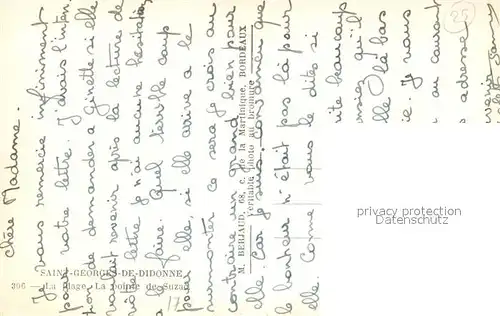 Chère Madame.
Je vous remercie infiniment
pour votre lettre. J'avais l'inten
tion de demander à Ginette si elle
voudrait revenir après la lecture de
votre lettre je n'ai aucune
à le faire. Quel terrible coup
pour elle, si elle arrive à le
surmonter ce sera je crois au
contraire un grand bien pour
elle. Car je suis que
le bonheur n'était pas là pour
elle. Comme vous le dites si
ite beaucoup
nsiez qu'il
lle là bas
ie. Je vous
au courant
adresse
SAINT-GEORGES-DE-DIDONNE
396 — La Plage. La pointe de Suzac
M. BERJAUD, 68, c. de la Martinique, BORDEAUX
Véritable photo au bromure
17
25
privacy protection
Datenschutz